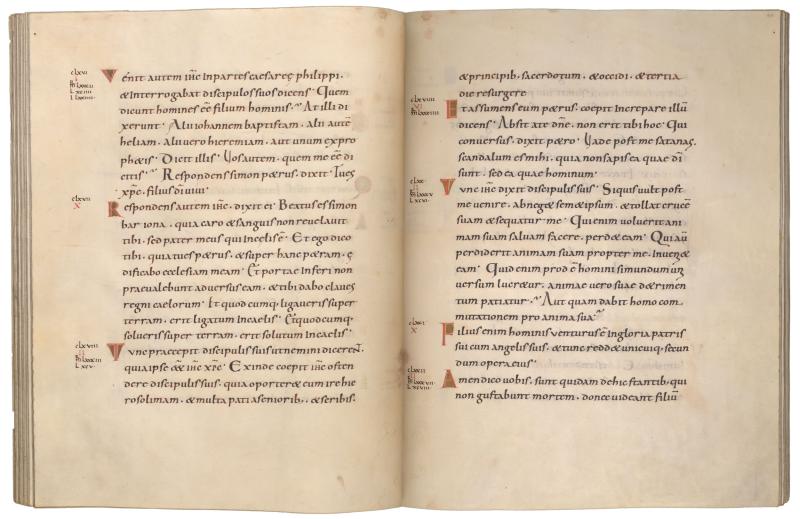 clxvi
i
m̄ lxxxii
l xciiii
i lxxiiii
Venit autem ihc inpartes caesareę philippi.
&interrogabat discipulossuos dicens. Quem
dicunt homines eē filium hominis. At illi di
xerunt. Alii iohannem baptistam, alii autē
heliam, alii vero hieremiam, aut unum expro
ph&is. Dicit illis. Vosautem, quem me eē di
citis. Respondens simon p&rus, dixit. Tues
xp̄c, filius dī uiui.
clxvii
x
Respondens autem ihc, dixit ei. Beatus es simon
bar iona, quia caro &sanguis non reuelauit
tibi, sed pater meus qui incelis ē. Et ego dico
tibi, quia tues p&rus, &super hanc p&ram, ę
dificabo ecclesiam meam. Et portae inferi non
praeualebunt aduersus eam, &tibi dabo claues
regni caelorum. Et quodcumq; ligaueris super
terram, erit ligatum incaelis. Et quodcumq;
solueris super terram, erit solutum incaelis.
clxviii
ii
m̄ lxxxiii
l xcv
Tunc praecepit discipulis suis utnemini dicerent,
quia ipse e& ihc xp̄c. Exinde coepit ihc osten
dere discipulis suis, quia oporter& eum ire hie
rosolimam, &multa pati aseniorib; &scribis,
&principib; sacerdotum, &occidi, &tertia
die resurgere
clxviiii
vi
m̄ lxxxiiii
Et assumens eum p&rus, coepit increpare illū
dicens. Absit ate dn̄e, non erit tibi hoc. Qui
conuersus, dixit p&ro. Vade post me satanas,
scandalum es mihi, quia non sapis ea quae dī
sunt, sed ea quae hominum.
clxx
ii
m̄ lxxxv
l xcvi
Tunc ihc dixit discipulis suis. Siquis uult post
me uenire, abneg& sem&ipsum, &tollat crucē
suam &sequatur me. Qui enim uoluerit ani
mam suam saluam facere, perd& eam. Qui aū
perdiderit animam suam propter me, inueni&
eam. Quid enim prod ē homini si mundum uni
uersum lucr&ur, animae uero suae d&rimen
tum patiatur. Aut quam dabit homo com
mutationem pro anima sua.
clxxi
x
Filius enim hominis uenturus ē ingloria patris
sui cum angelis suis, &tunc redd& unicuiq; secun
dum opera eius.
clxxii
ii
m̄ lxxxvii
l xcviii
Amen dico uobis, sunt quidam de hic stantib; qui
non gustabunt mortem, donec uideant filiū